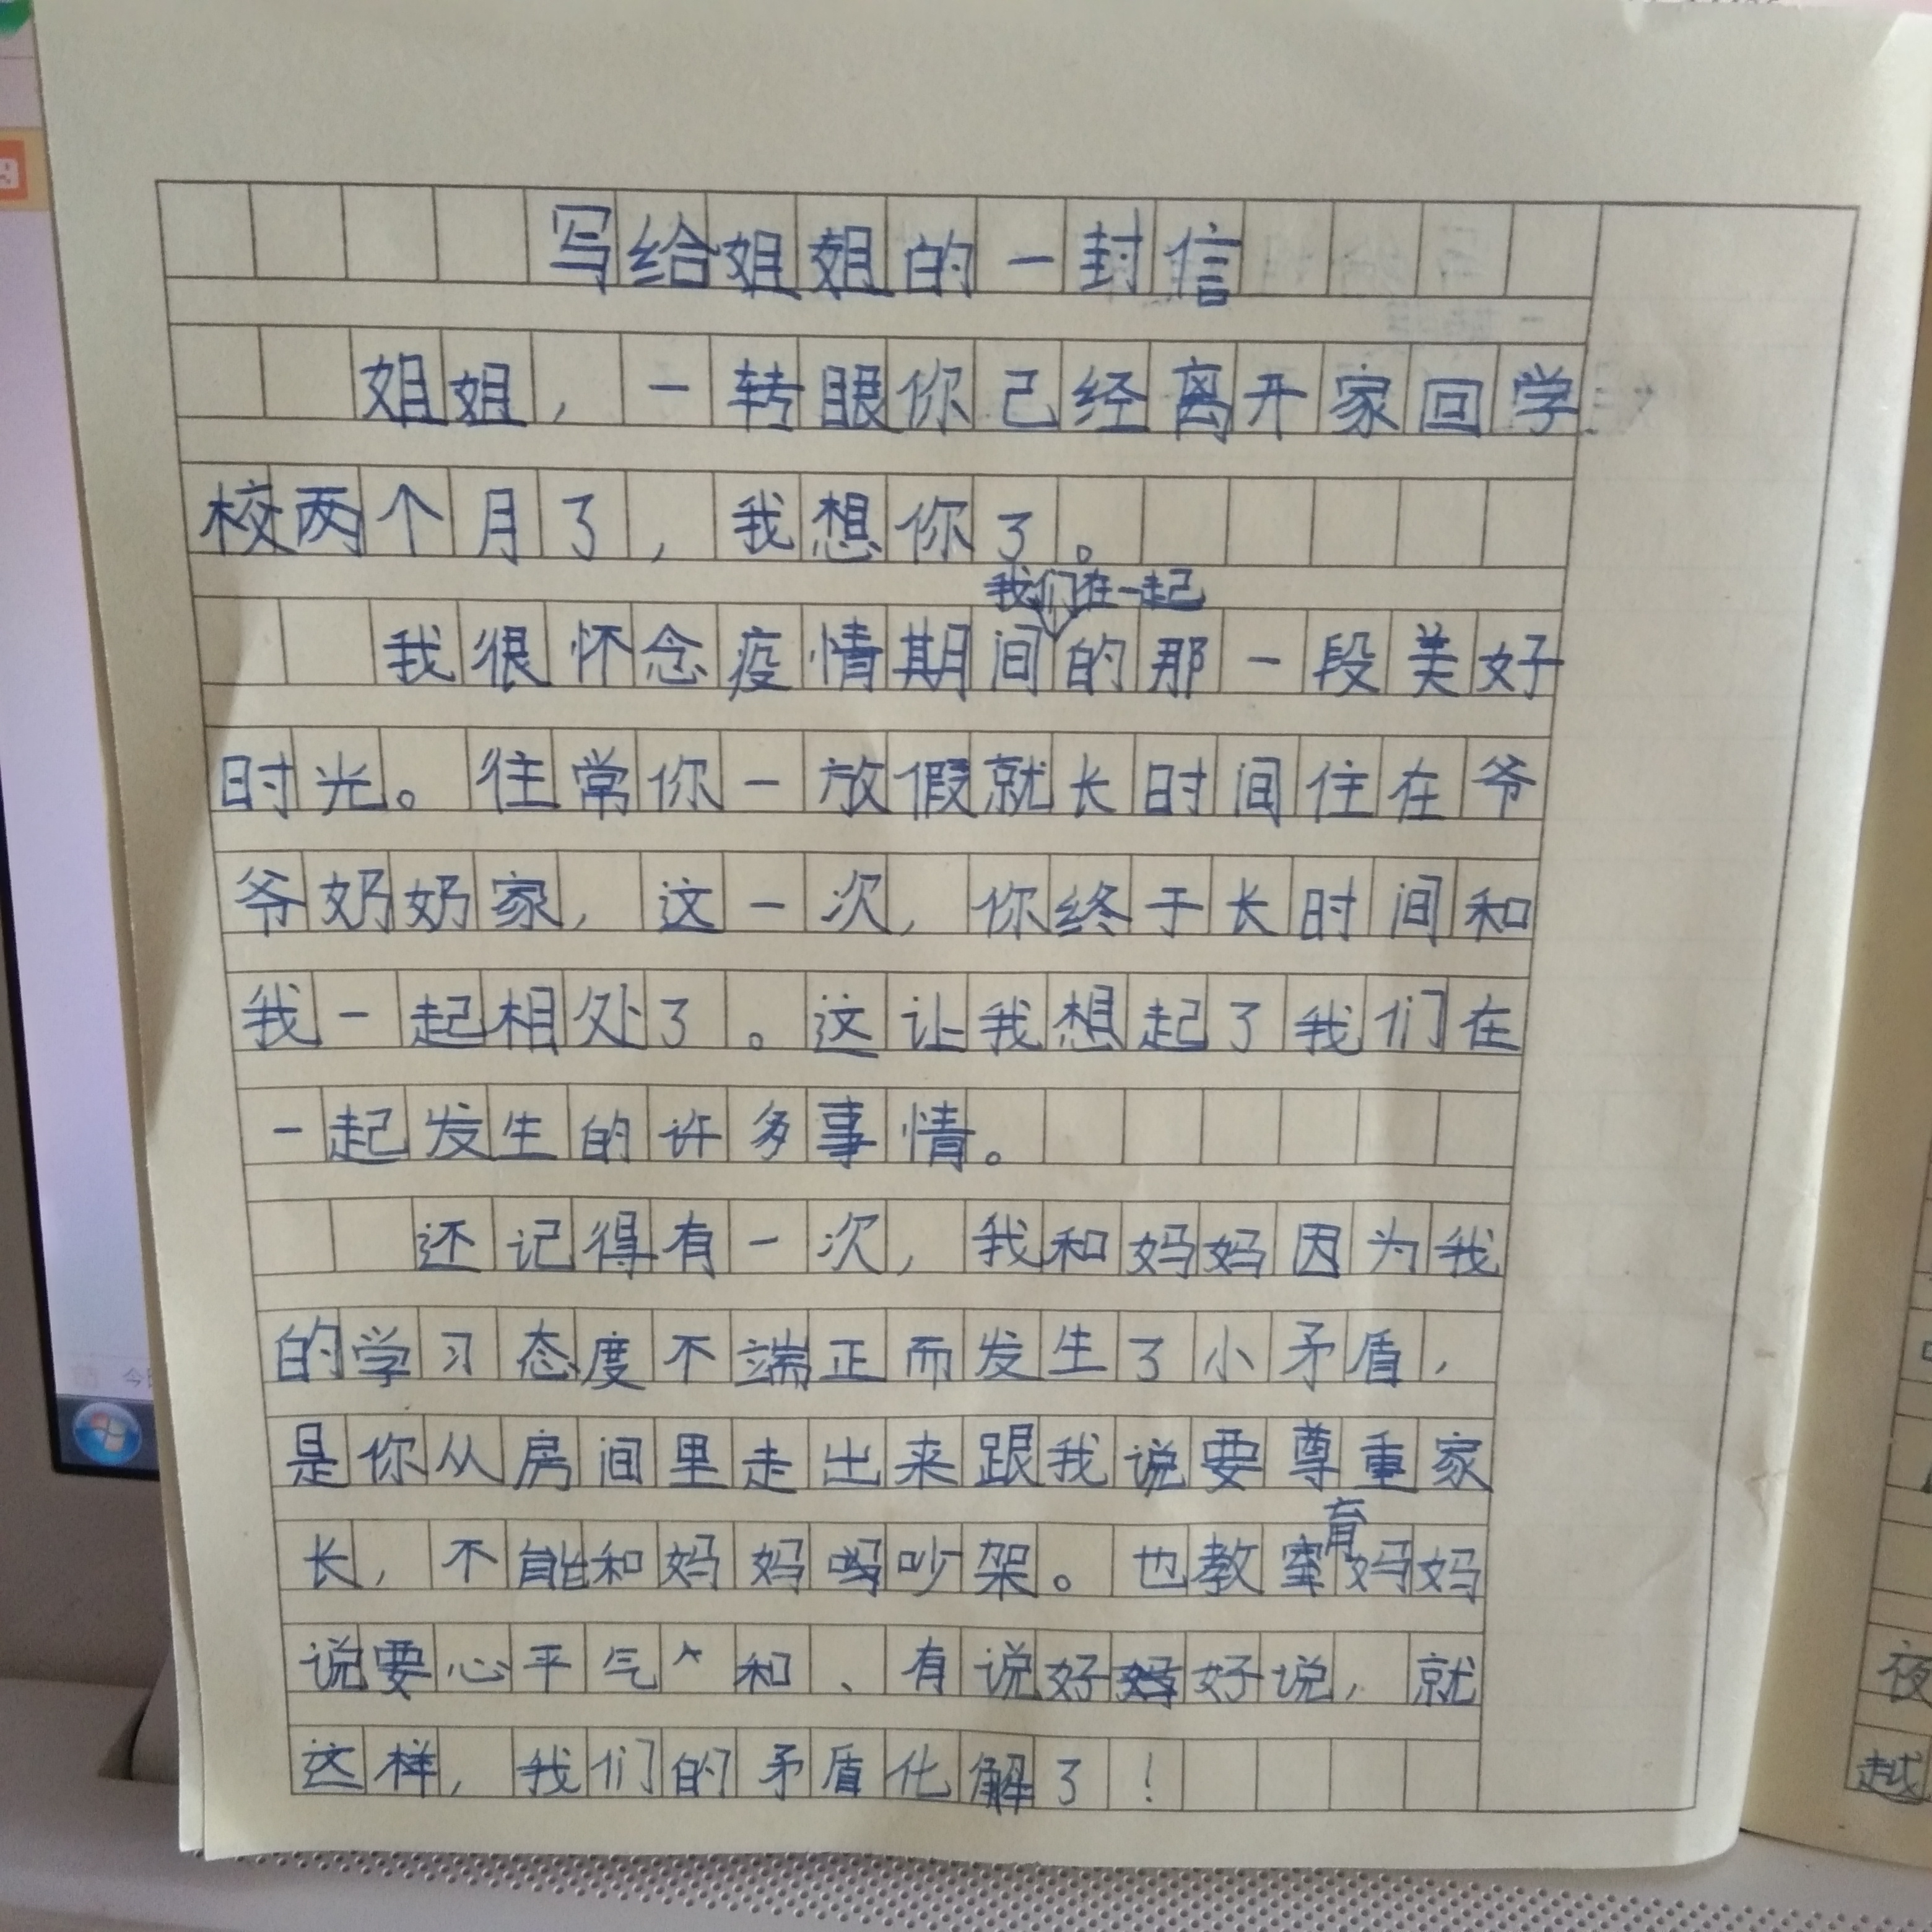 写给姐姐的一封信
姐姐，一转眼你己经离开家回学
校两个月了，我想你了。
我们在一起
我很怀念疫情期间的那一段美好
时光。往常你一放假就长时间住在爷
爷奶奶家，这一次，你终于长时间和
我一起相处了。这让我想起了我们在
一起发生的许多事情。
还记得有一次，我和妈妈因为我
的学习态度不端正而发生了小矛盾，
是你从房间里走出来跟我说要尊重家
育
长，不能和妈妈吵架。也教妈妈
说要心平气和、有说好好说，就
这样，我们的矛盾化解了！
夜
越